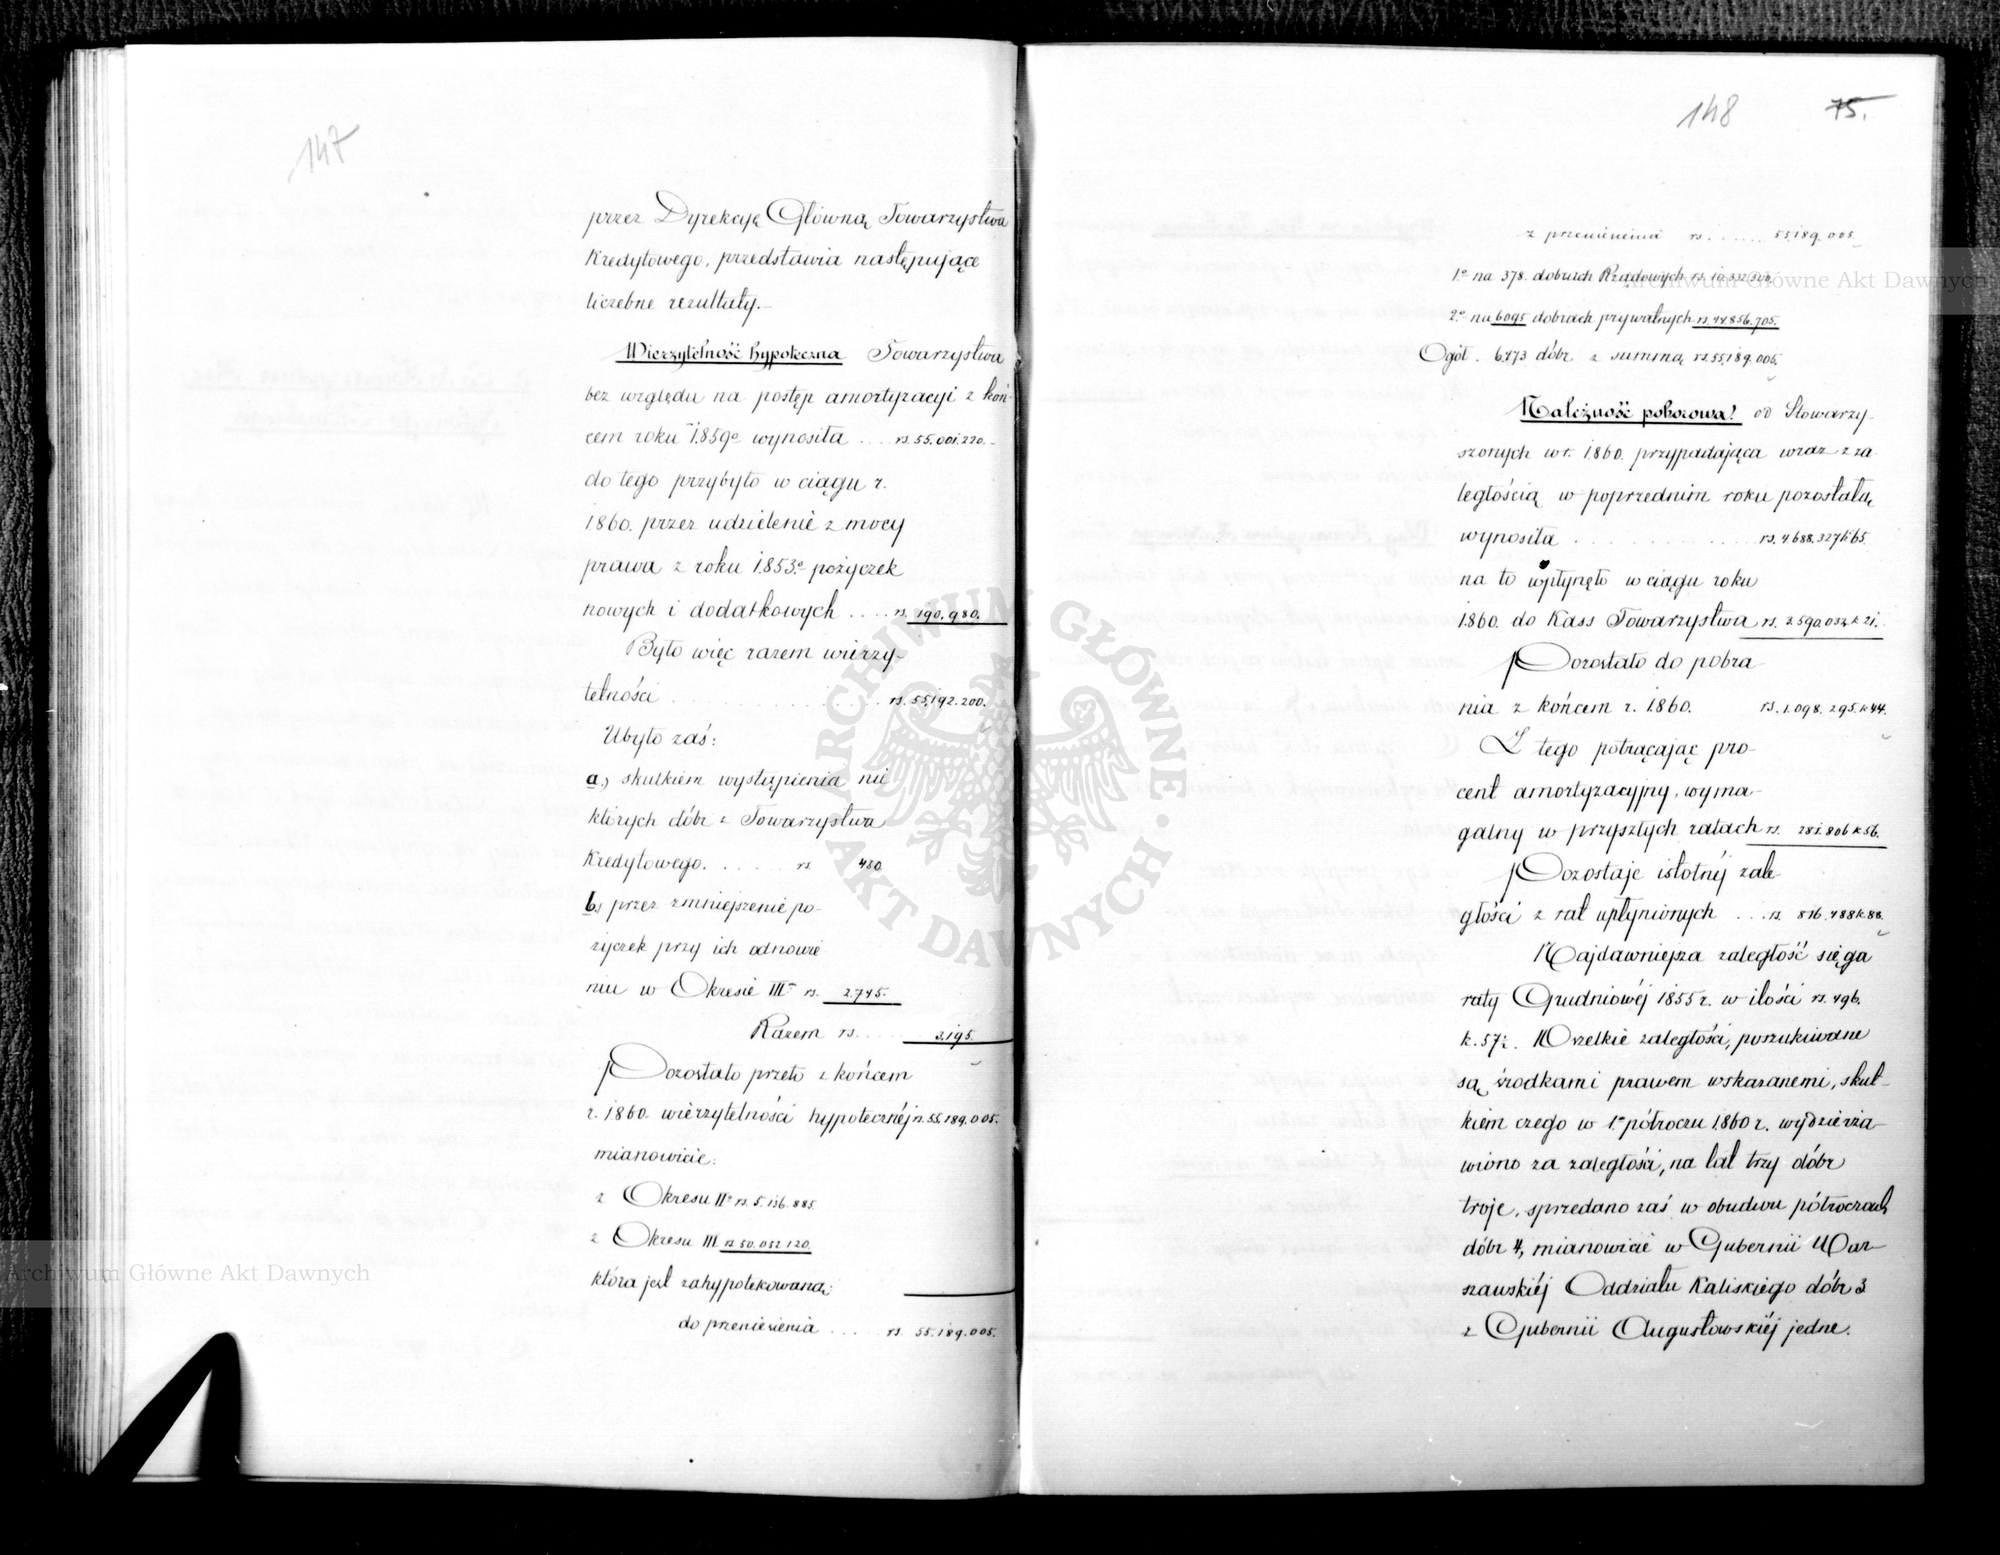 147
przez Dyrekcyę Główną Towarzystwa
Kredytowego, przedstawia następujące
liczebne rezultaty.
Wierzytelność hypoteczna Towarzystwa
bez względu na postęp amortyzacyi z koń-
cem roku 1859o wynosiła .... rs. 55.001.220.
do tego przybyło w ciągu r.
1860. przez udzielenie z mocy
prawa z roku 1853.o pożyczek
nowych i dodatkowych .... rs. 190.980.
Było więc razem wierzy-
telności ........ rs. 55.192.200.
Ubyło zaś:
a.) skutkiem wystąpienia nie
których dóbr z Towarzystwa
Kredytowego. ..... rs. 450
b.) przez zmniejszenie po-
życzek przy ich odnowie
niu w Okresie III rs. 2.745.
Razem rs. .... 3.195.
Pozostało przeto z końcem
r. 1860. wierzytelności hypotecznéj rs. 55.189.005.
mianowicie:
z Okresu II rs. 5.136.885.
z Okresu III rs. 50.052.120.
która jest zahypotekowana:
do przeniesienia .... rs. 55.189.005.
148 75.
z przeniesienia rs. ..... 55.189.005.
1.o na 378. dobrach Rządowych rs. 10.332.300.
2.o na 6095 dobrach prywatnych rs. 44.856.705.
Ogół. 6.473 dóbr z summą rs. 55.189.005.
Należność poborowa! od Stowarzy-
szonych w r. 1860. przypadająca wraz z za
ległością w poprzednim roku pozostałą
wynosiła ........ rs. 4.688.327 k 65.
na to wpłynęło w ciągu roku
1860. do Kass Towarzystwa rs. 3.590.032 k 21.
Pozostało do pobra-
nia z końcem r. 1860. rs. 1.098.295. k 44.
Z tego potrącając pro-
cent amortyzacyjny, wyma-
galny w przyszłych ratach rs. 281.806 k 56.
Pozostaje istotnéj zale-
głości z rat upłynionych ... rs. 816.488 k. 88.
Najdawniejsza zaległość sięga
raty Grudniowéj 1855 r. w ilości rs. 496.
k. 57½. Wszelkie zaległości, poszukiwane
są środkami prawem wskazanemi, skut-
kiem czego w 1.m półroczu 1860 r. wydzierża-
wiono za zaległości, na lat trzy dóbr
troje, sprzedano zaś w obudwu półroczach
dóbr 4, mianowicie w Gubernii War-
szawskiéj Oddziału Kaliskiego dóbr 3
z Gubernii Augustowskiéj jedne.
ARCHIWUM GŁÓWNE AKT DAWNYCH
Archiwum Główne Akt Dawnych
Archiwum Główne Akt Dawnych